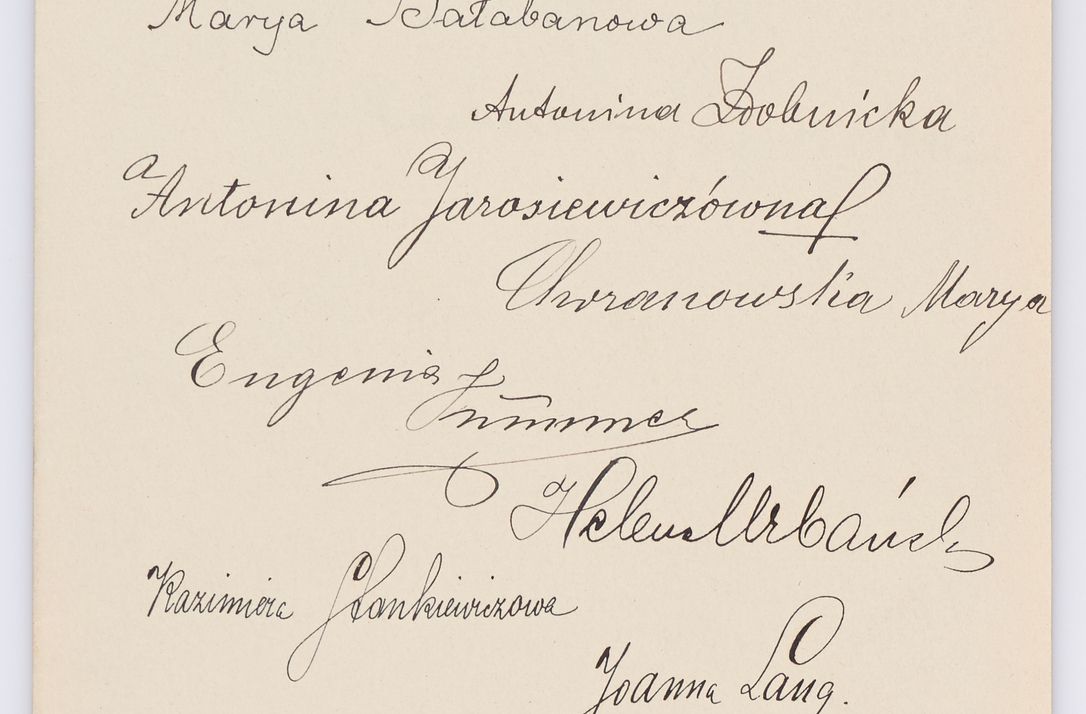 Marya Bałabanowa
Antonina Zdobnicka
Antonina Jarosiewiczówna
Choranowska Marya
Eugenia
Helena Urbańska
Kazimiera Stankiewiczowa
Joanna Lang.